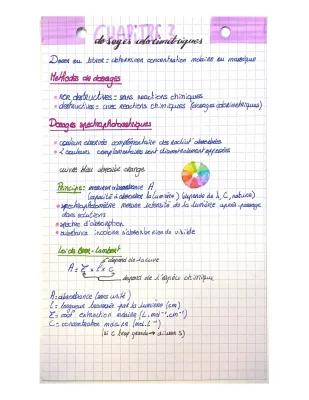 CHAPITRE 3
dosages colorimétriques
Doser ou titrer = déterminer concentration molaire ou massique
Méthodes de dosages
non destructives = sans réactions chimiques
destructives = avec réactions chimiques (dosages colorimétriques)
Dosages spectrophotométriques
couleur absorbée complémentaire des radiat° absorbées
2 couleurs complémentaires sont diamétralement opposées
bleu absorbe orange
Principe: mesurer absorbance A
(capacité à absorber la lumière) (dépends de λ, C, nature)
spectrophotomètre mesure intensité de la lumière après passage
dans solutions
spectre d'absorption
substance incolore n'absorbe rien du visible
Loi de Beer-Lambert
dépend de la cuve
A = Ɛ x l x C
dépend de l'espèce chimique
A = absorbance (sans unité)
l = longueur traversée par la lumière (cm)
Ɛ = coef extinction molaire (L.mol⁻¹.cm⁻¹)
C = concentration molaire (mol.L⁻¹)
(si C trop grande → diluer S)